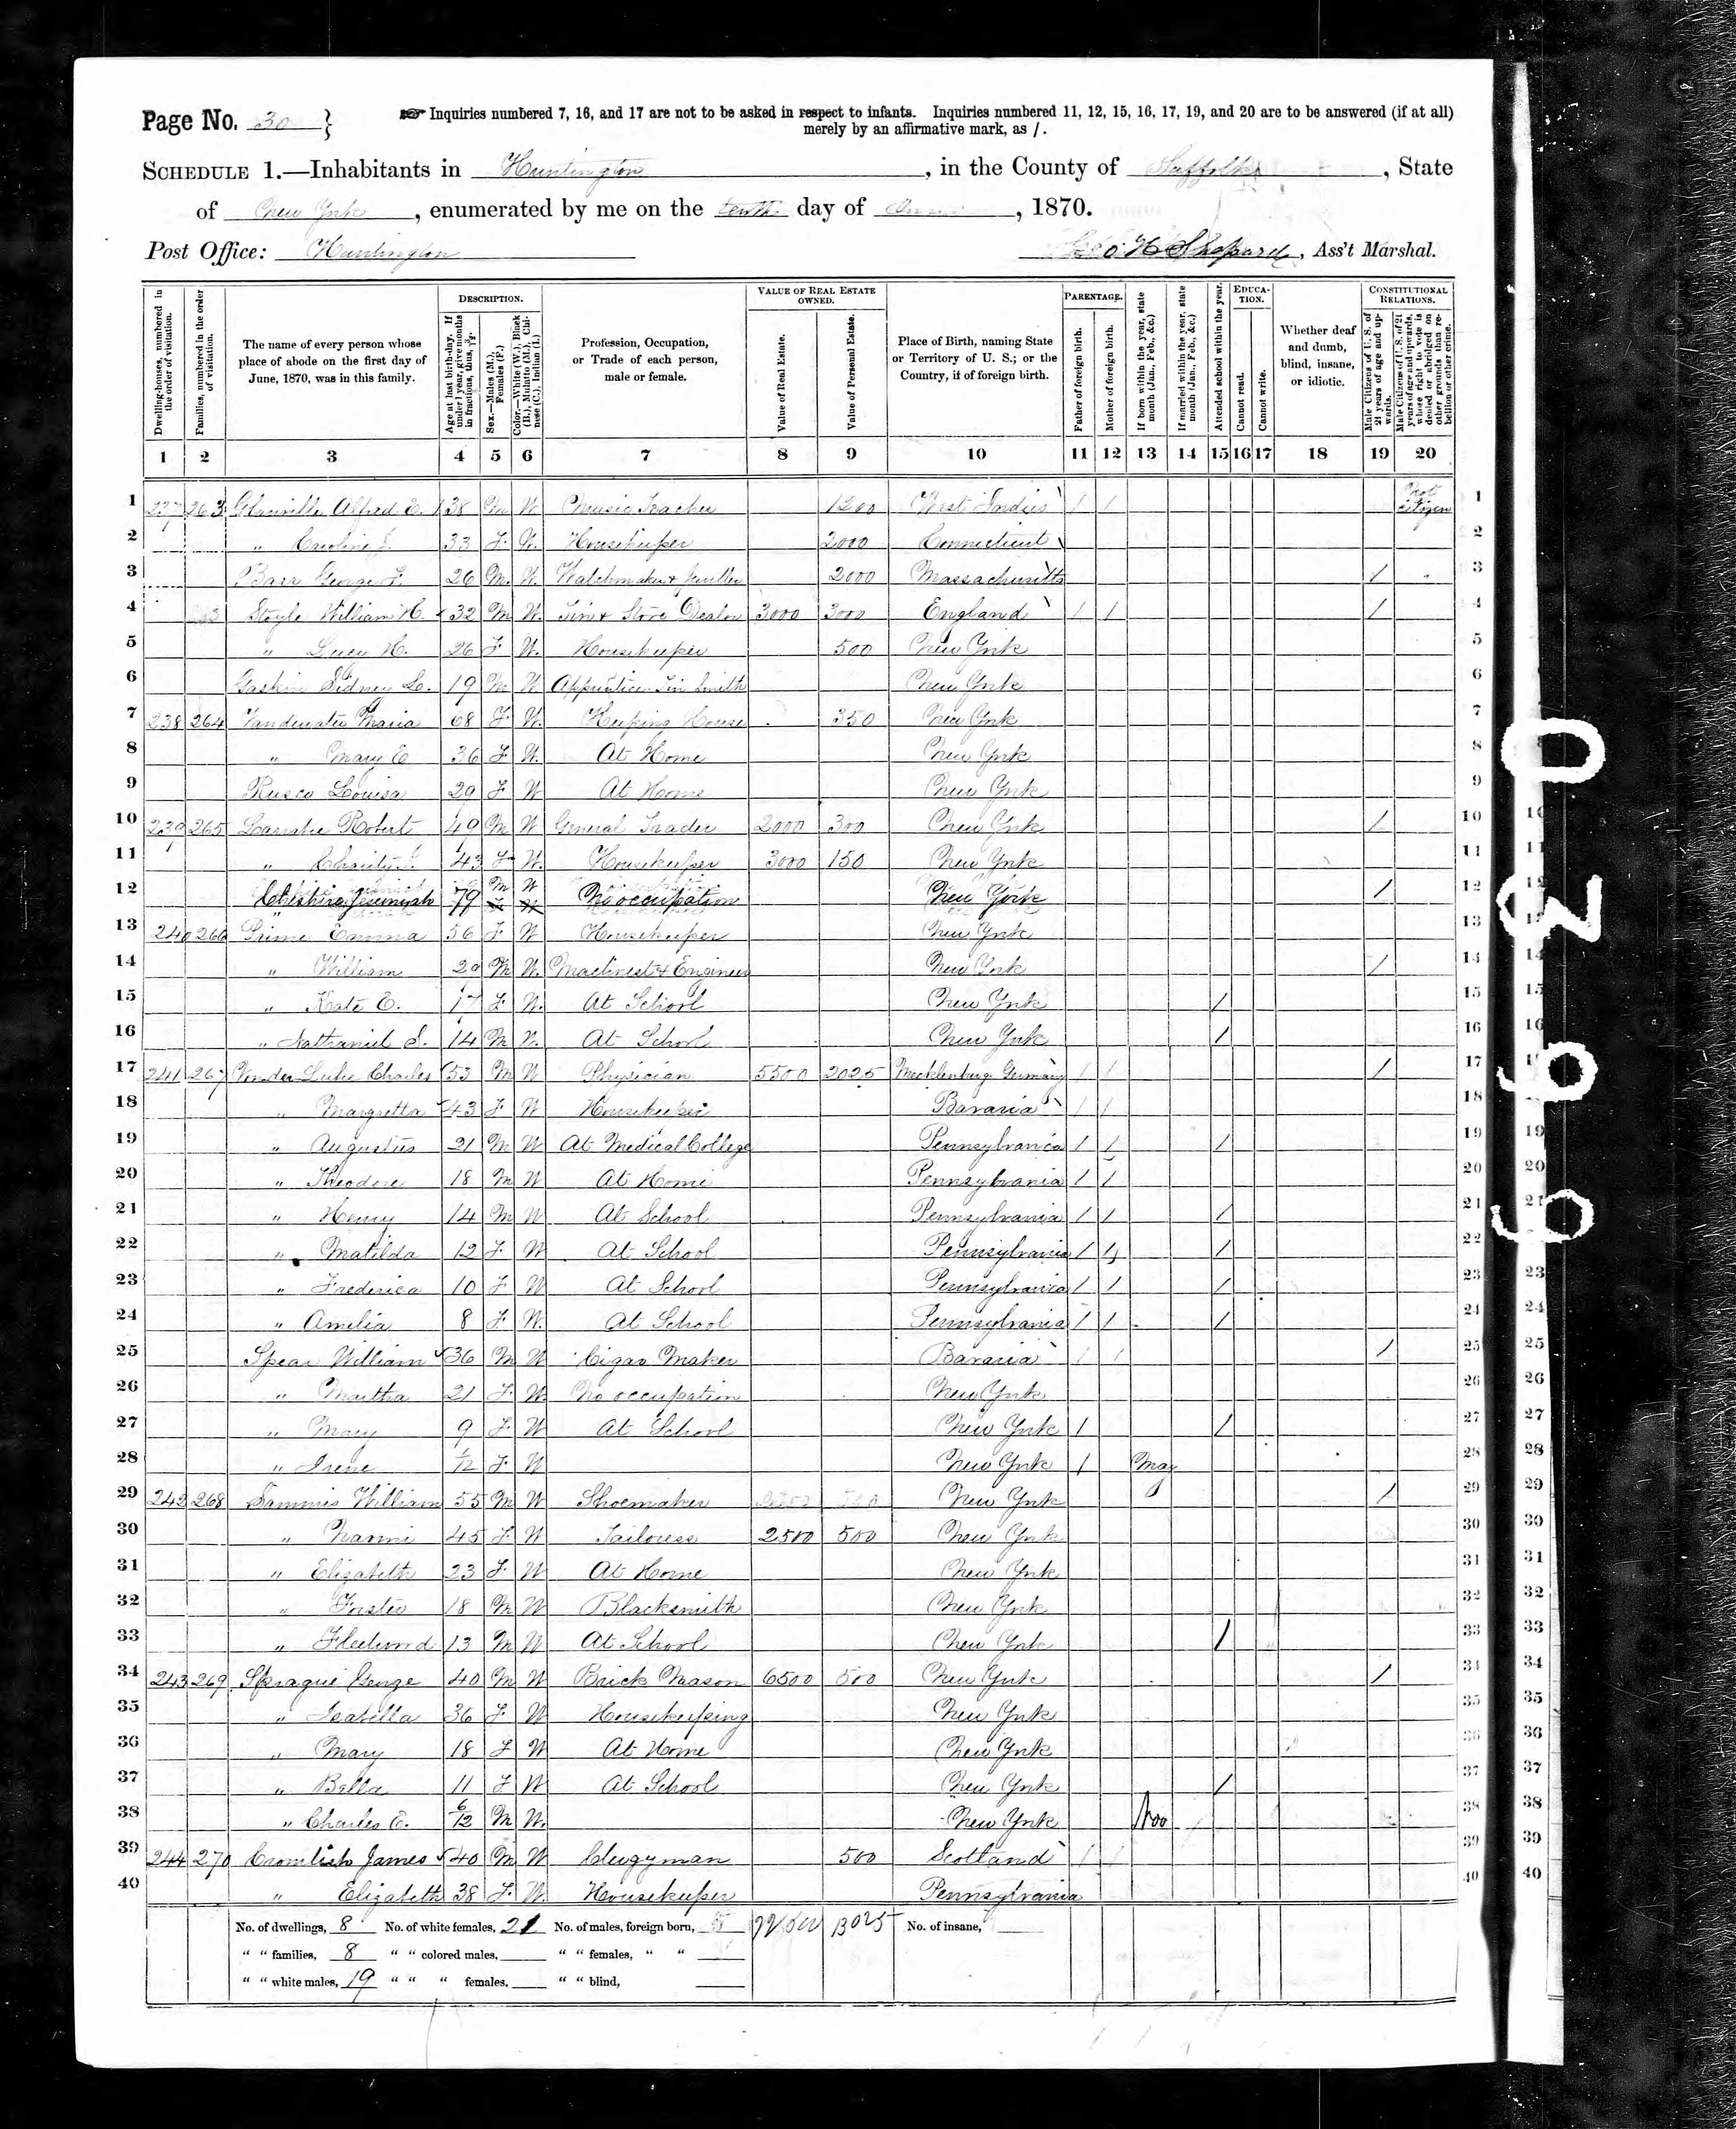 Page No. 30 }
☞ Inquiries numbered 7, 16, and 17 are not to be asked in respect to infants. Inquiries numbered 11, 12, 15, 16, 17, 19, and 20 are to be answered (if at all)
merely by an affirmative mark, as /.
SCHEDULE 1.—Inhabitants in Huntington, in the County of Suffolk, State
of New York, enumerated by me on the tenth day of June, 1870.
Post Office: Huntington Geo H Shepard, Ass't Marshal.
Dwelling-houses, numbered in the order of visitation.
Families, numbered in the order of visitation.
The name of every person whose place of abode on the first day of June, 1870, was in this family.
DESCRIPTION.
Age at last birth-day. If under 1 year, give months in fractions, thus, 3/12.
Sex.—Males (M.), Females (F.)
Color.—White (W.), Black (B.), Mulatto (M.), Chinese (C.), Indian (I.)
Profession, Occupation, or Trade of each person, male or female.
VALUE OF REAL ESTATE OWNED.
Value of Real Estate.
Value of Personal Estate.
Place of Birth, naming State or Territory of U. S.; or the Country, if of foreign birth.
PARENTAGE.
Father of foreign birth.
Mother of foreign birth.
If born within the year, state month (Jan., Feb., &c.)
If married within the year, state month (Jan., Feb., &c.)
Attended school within the year.
EDUCATION.
Cannot read.
Cannot write.
Whether deaf and dumb, blind, insane, or idiotic.
CONSTITUTIONAL RELATIONS.
Male Citizens of U. S. of 21 years of age and upwards.
Male Citizens of U. S. of 21 years of age and upwards, whose right to vote is denied or abridged on other grounds than rebellion or other crime.
1 2 3 4 5 6 7 8 9 10 11 12 13 14 15 16 17 18 19 20
1 237 263 Glanville Alfred E. 38 M W Music Teacher 1200 West Indies / / Not citizen 1
2 " Caroline 33 F. W. Housekeeper 2000 Connecticut 2
3 Barr George F. 26 M. W. Watchmaker & Jeweller 2000 Massachusetts / 3
4 Stoyle William H. 32 M W. Tin & Stove Dealer 3000 3000 England / / / 4
5 " Lucy H. 26 F W. Housekeeper 500 New York 5
6 Gaskin Sidney L. 19 M W Apprentice Tin Smith New York 6
7 238 264 Vandewater Maria 68 F. W. Keeping House 350 New York 7
8 " Mary E 36 F W. At Home New York 8
9 Rusco Louisa 29 F W At Home New York 9
10 239 265 Larrabee Robert 49 M W General Trader 2000 300 New York / 10
11 " Charity 43 F W. Housekeeper 3000 150 New York 11
12 Cheshire Jeremiah 79 M W No occupation New York / 12
13 240 266 Prime Emma 56 F W Housekeeper New York 13
14 " William 29 M W. Machinest & Engineer New York / 14
15 " Kate E. 17 F W. At School New York / 15
16 " Nathaniel S. 14 M W. At School New York / 16
17 241 267 Charles 53 M W Physician 5500 2025 Mecklenburg Germany / / / 17
18 " Margretta 43 F W Housekeeper Bavaria / / 18
19 " Augustus 21 M W At Medical College Pennsylvania / / / 19
20 " Theodore 18 M W At Home Pennsylvania / / 20
21 " Henry 14 M W At School Pennsylvania / / / 21
22 " Matilda 12 F W At School Pennsylvania / / / 22
23 " Frederica 10 F W At School Pennsylvania / / / 23
24 " Amelia 8 F. W. At School Pennsylvania / / / 24
25 Spear William 36 M W Cigar Maker Bavaria / / / 25
26 " Martha 21 F. W. No occupation New York 26
27 " Mary 9 F W At School New York / / 27
28 " Irene 1/12 F. W New York / May 28
29 242 268 Sammis William 55 M W Shoemaker New York / 29
30 " Naomi 45 F W Tailoress 2500 500 New York 30
31 " Elizabeth 23 F. W At Home New York 31
32 " Foster 18 M W Blacksmith New York 32
33 " Fleetwood 13 M W At School New York / 33
34 243 269 Sprague George 40 M W Brick Mason 6500 500 New York / 34
35 " Isabella 36 F W Housekeeping New York 35
36 " Mary 18 F W At Home New York 36
37 " Bella 11 F W At School New York / 37
38 " Charles E. 6/12 M W. New York Nov 38
39 244 270 Cromlish James 40 M W Clergyman 500 Scotland / / 39
40 " Elizabeth 38 F. W. Housekeeper Pennsylvania 40
No. of dwellings, 8 No. of white females, 21 No. of males, foreign born, 5 13025 No. of insane,
" " families, 8 " " colored males, " " females, " "
" " white males, 19 " " " females, " " blind,